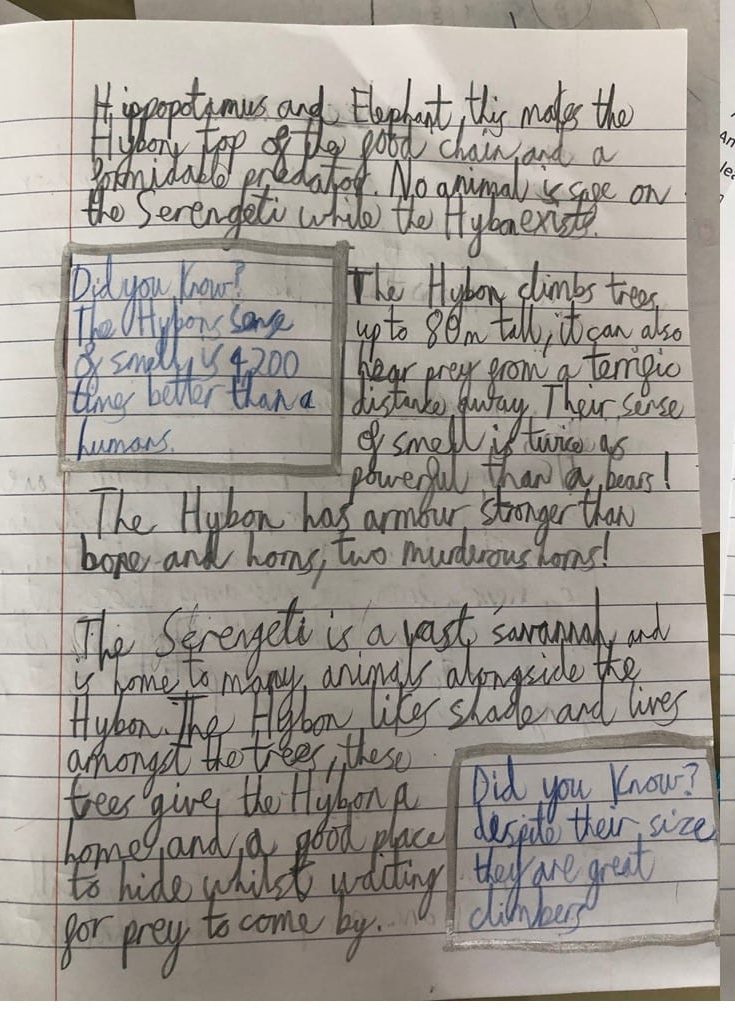 Hippopotamus and Elephant, this makes the
Hybon, top of the food chain, and a
formidable predator. No animal is safe on
the Serengeti while the Hybon exists.
Did you Know?
The Hybons sense
of smell, is 4,200
times better than a
humans.
The Hybon climbs trees,
up to 80m tall, it can also
hear prey from a terrific
distance away. Their sense
of smell is twice as
powerful than a bears!
The Hybon has armour stronger than
bone and horns, two murderous horns!
The Serengeti is a vast, savannah, and
is home to many animals alongside the
Hybon. The Hybon likes shade and lives
amongst the trees, these
trees give the Hybon a
home, and a good place
to hide whilst waiting
for prey to come by.
Did you Know?
despite their size
they are great
climbers